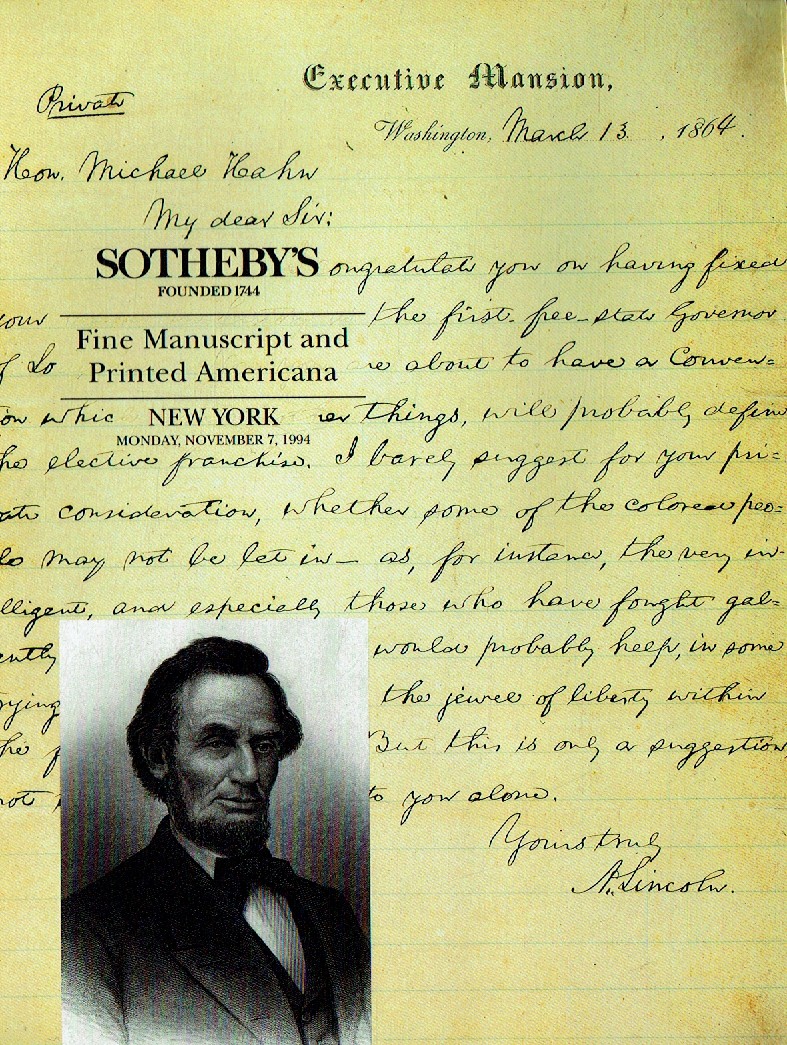 Executive Mansion,
Private
Washington, March 13, 1864.
Hon. Michael Hahn
My dear Sir:
SOTHEBY'S
FOUNDED 1744
ongratulate you on having fixed
your
the first-free-state Governor
f Lo
Fine Manuscript and
Printed Americana
re about to have a Conven=
on whic
NEW YORK
er things, will probably define
MONDAY, NOVEMBER 7, 1994
he elective franchise. I barely suggest for your pri=
ate consideration, whether some of the colored peo=
le may not be let in— as, for instance, the very in-
lligent, and especially those who have fought gal=
ently
would probably help, in some
rying
the jewel of liberty within
he f
But this is only a suggestion,
not
to you alone.
Yours truly
A. Lincoln.